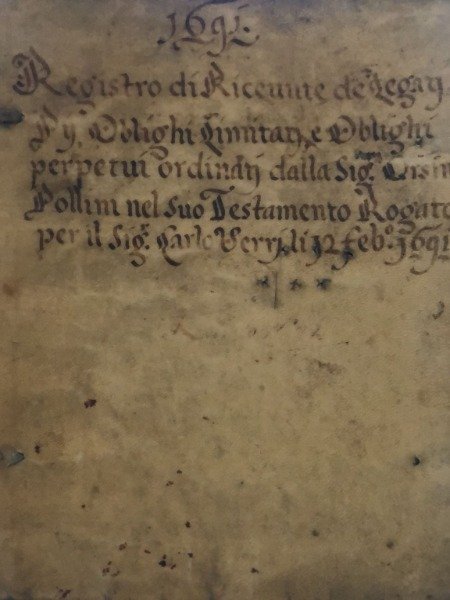 1691.
Registro di Riceuute de Legati
Pij, Oblighi Limitati, e Oblighi
perpetui ordinati dalla Sig.
Pollini nel suo Testamento Rogato
per il Sig. Carlo Verri, li 12 feb.o 1691